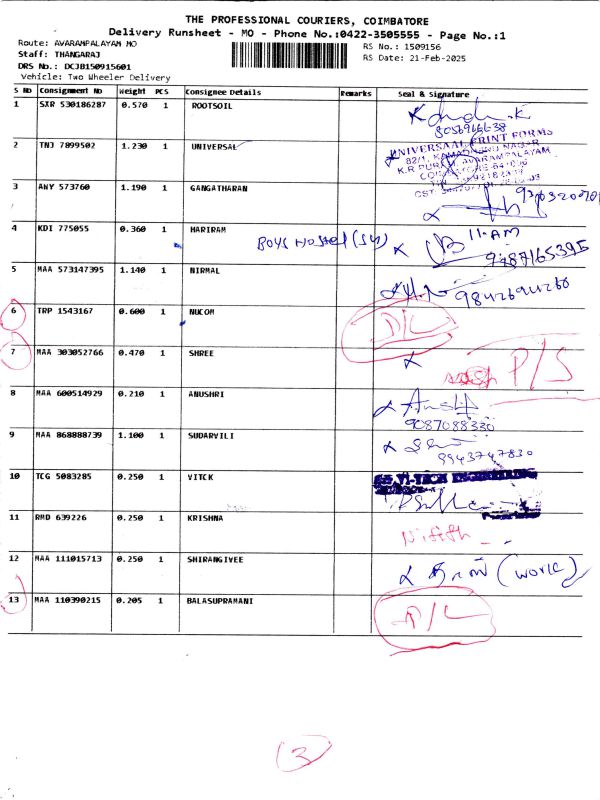 THE PROFESSIONAL COURIERS, COIMBATORE
Delivery Runsheet - MO - Phone No.:0422-3505555 - Page No.:1
Route: AVARAMPALAYAM MO
RS No.: 1509156
Staff: THANGARAJ
RS Date: 21-Feb-2025
DRS No.: DCJB150915601
Vehicle: Two Wheeler Delivery
S No Consignment No Weight PCS Consignee Details Remarks Seal & Signature
1 SXR 530186287 0.570 1 ROOTSOIL
2 TNJ 7899502 1.230 1 UNIVERSAL
UNIVERSAAL PRINT FORMS
3 ANY 573760 1.190 1 GANGATHARAN
4 KDI 775055 0.360 1 HARIRAM BOYS Hostel 11-AM
9787165395
5 MAA 573147395 1.140 1 NIRMAL
9842694268
6 TRP 1543167 0.600 1 NUCOM D/L
7 MAA 303052766 0.470 1 SHREE P/S
8 MAA 600514929 0.210 1 ANUSHRI
9087088330
9 MAA 868888739 1.100 1 SUDARVILI
9943747830
10 TCG 5083285 0.250 1 VITCK
11 RMD 639226 0.250 1 KRISHNA
12 MAA 111015713 0.250 1 SHIRANGIVEE (WORK)
13 MAA 110390215 0.205 1 BALASUPRAMANI D/L
3